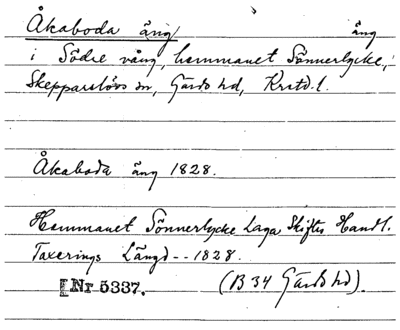 Åkaboda äng äng
i Södre vång, hemmanet Sönnerlycke,
Skepparslövs sn, Gärds hd, Krstd. l.
Åkaboda äng 1828.
Hemmanet Sönnerlycke Laga Skiftes Handl.
Taxerings Längd -- 1828.
Nr 5337. (B 34 Gärds hd).